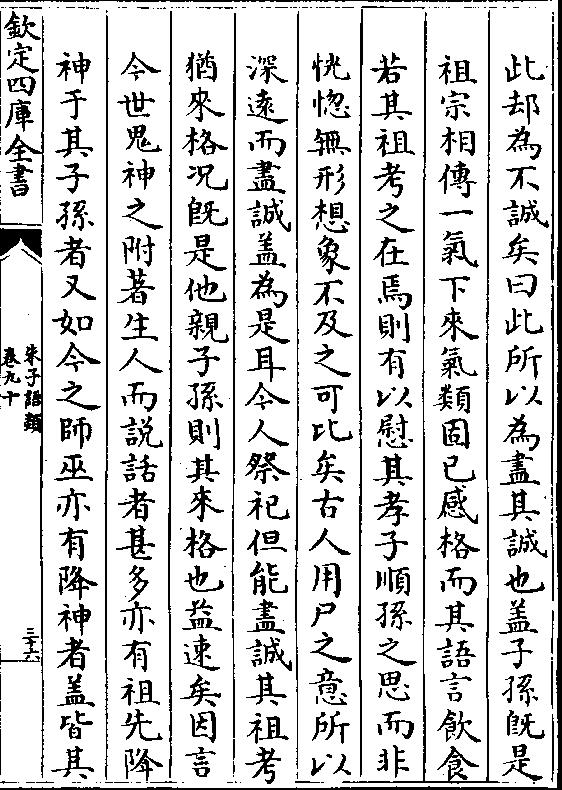 此却為不誠矣曰此所以為盡其誠也盖子孫旣是
祖宗相傳一氣下來氣類固已感格而其語言飲食
若其祖考之在焉則有以慰其孝子順孫之思而非
恍惚無形想象不及之可比矣古人用尸之意所以
深遠而盡誠盖為是耳今人祭祀但能盡誠其祖考
猶來格况旣是他親子孫則其來格也益速矣因言
今世鬼神之附著生人而說話者甚多亦有祖先降
神于其子孫者又如今之師巫亦有降神者盖皆其
欽定四庫全書
朱子語類
卷九十
三十六